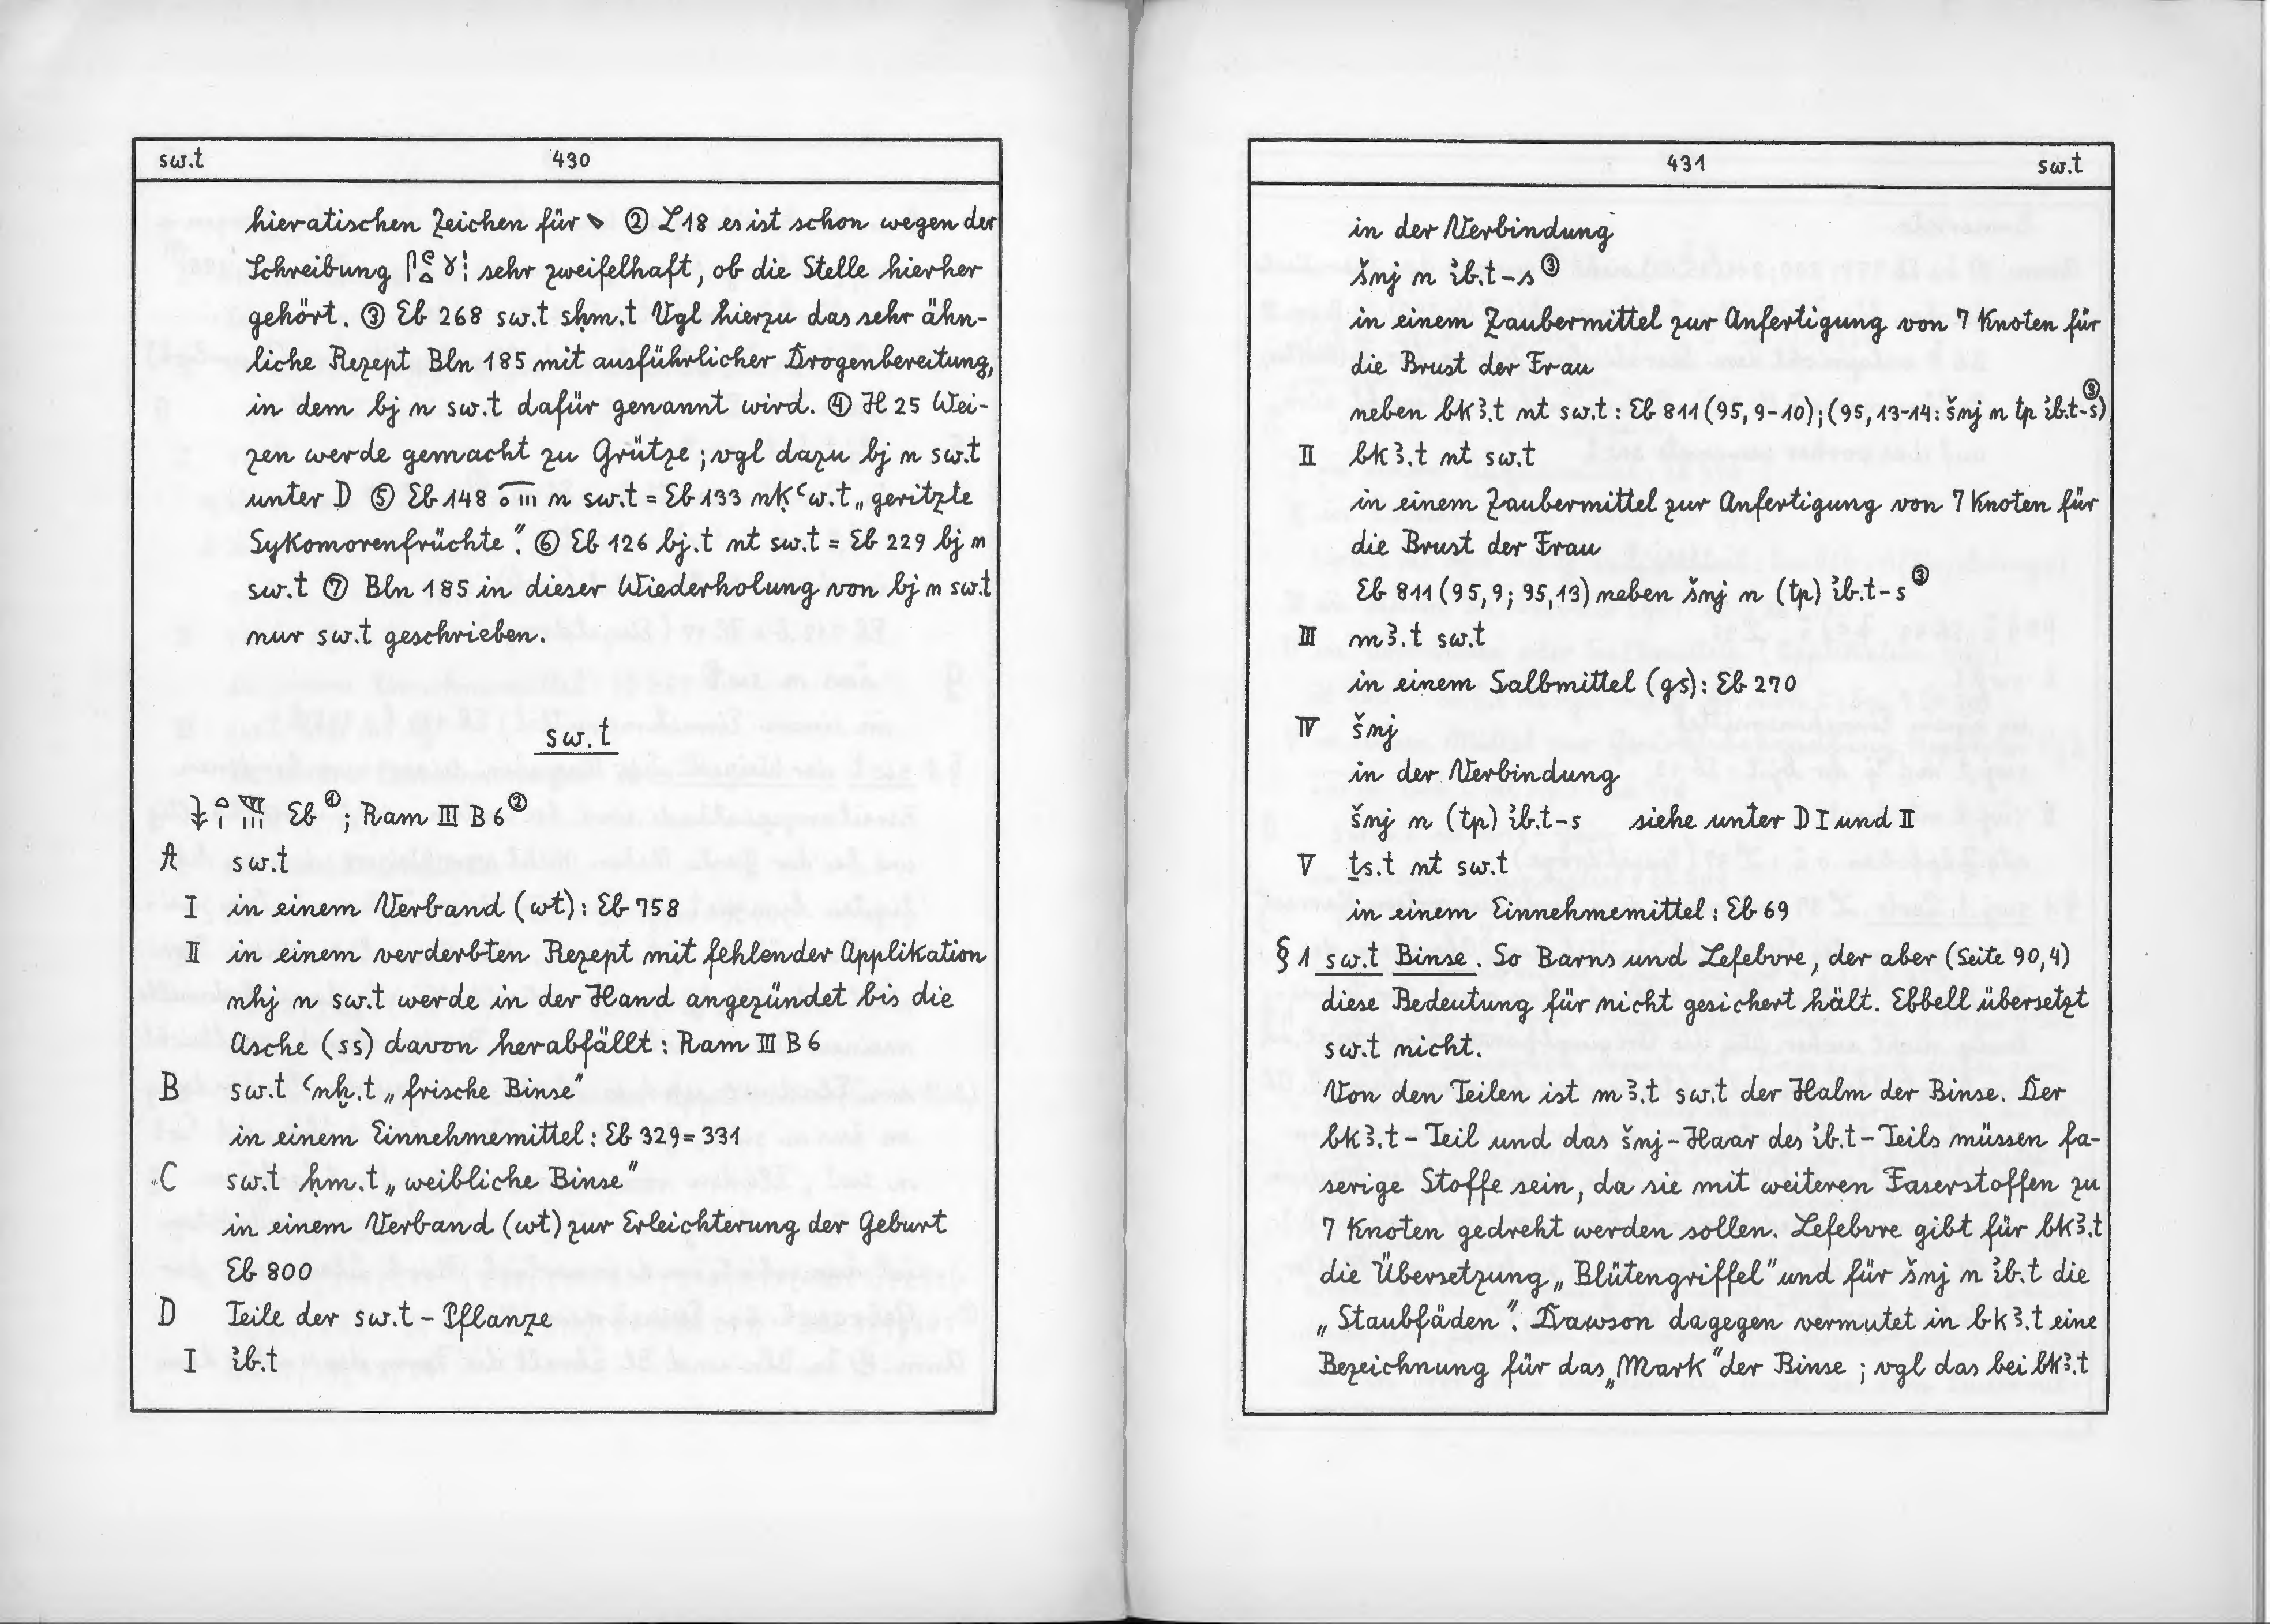 sw.t 430
hieratischen Zeichen für ② L 18 es ist schon wegen der
Schreibung sehr zweifelhaft, ob die Stelle hierher
gehört. ③ Eb 268 sw.t sḥm.t Vgl hierzu das sehr ähn-
liche Rezept Bln 185 mit ausführlicher Drogenbereitung,
in dem bj n sw.t dafür genannt wird. ④ H 25 Wei-
zen werde gemacht zu Grütze; vgl dazu bj n sw.t
unter D ⑤ Eb 148 n sw.t = Eb 133 nḳꜥw.t „geritzte
Sykomorenfrüchte“. ⑥ Eb 126 bj.t nt sw.t = Eb 229 bj n
sw.t ⑦ Bln 185 in dieser Wiederholung von bj n sw.t
nur sw.t geschrieben.
sw.t
Eb①; Ram III B 6②
A sw.t
I in einem Verband (wt): Eb 758
II in einem verderbten Rezept mit fehlender Applikation
nhj n sw.t werde in der Hand angezündet bis die
Asche (ss) davon herabfällt: Ram III B 6
B sw.t ꜥnḫ.t „frische Binse“
in einem Einnehmemittel: Eb 329 = 331
C sw.t ḥm.t „weibliche Binse“
in einem Verband (wt) zur Erleichterung der Geburt
Eb 800
D Teile der sw.t-Pflanze
I ἰb.t
431 sw.t
in der Verbindung
šnj n ἰb.t-s③
in einem Zaubermittel zur Anfertigung von 7 Knoten für
die Brust der Frau
neben bkꜣ.t nt sw.t: Eb 811 (95, 9-10); (95, 13-14: šnj n tp ἰb.t-s③)
II bkꜣ.t nt sw.t
in einem Zaubermittel zur Anfertigung von 7 Knoten für
die Brust der Frau
Eb 811 (95, 9; 95, 13) neben šnj n (tp) ἰb.t-s③
III mꜣ.t sw.t
in einem Salbmittel (gs): Eb 270
IV šnj
in der Verbindung
šnj n (tp) ἰb.t-s siehe unter D I und II
V ṯs.t nt sw.t
in einem Einnehmemittel: Eb 69
§ 1 sw.t Binse. So Barns und Lefebvre, der aber (Seite 90, 4)
diese Bedeutung für nicht gesichert hält. Ebbell übersetzt
sw.t nicht.
Von den Teilen ist mꜣ.t sw.t der Halm der Binse. Der
bkꜣ.t-Teil und das šnj-Haar des ἰb.t-Teils müssen fa-
serige Stoffe sein, da sie mit weiteren Faserstoffen zu
7 Knoten gedreht werden sollen. Lefebvre gibt für bkꜣ.t
die Übersetzung „Blütengriffel“ und für šnj n ἰb.t die
„Staubfäden“. Dawson dagegen vermutet in bkꜣ.t eine
Bezeichnung für das „Mark“ der Binse; vgl das bei bkꜣ.t